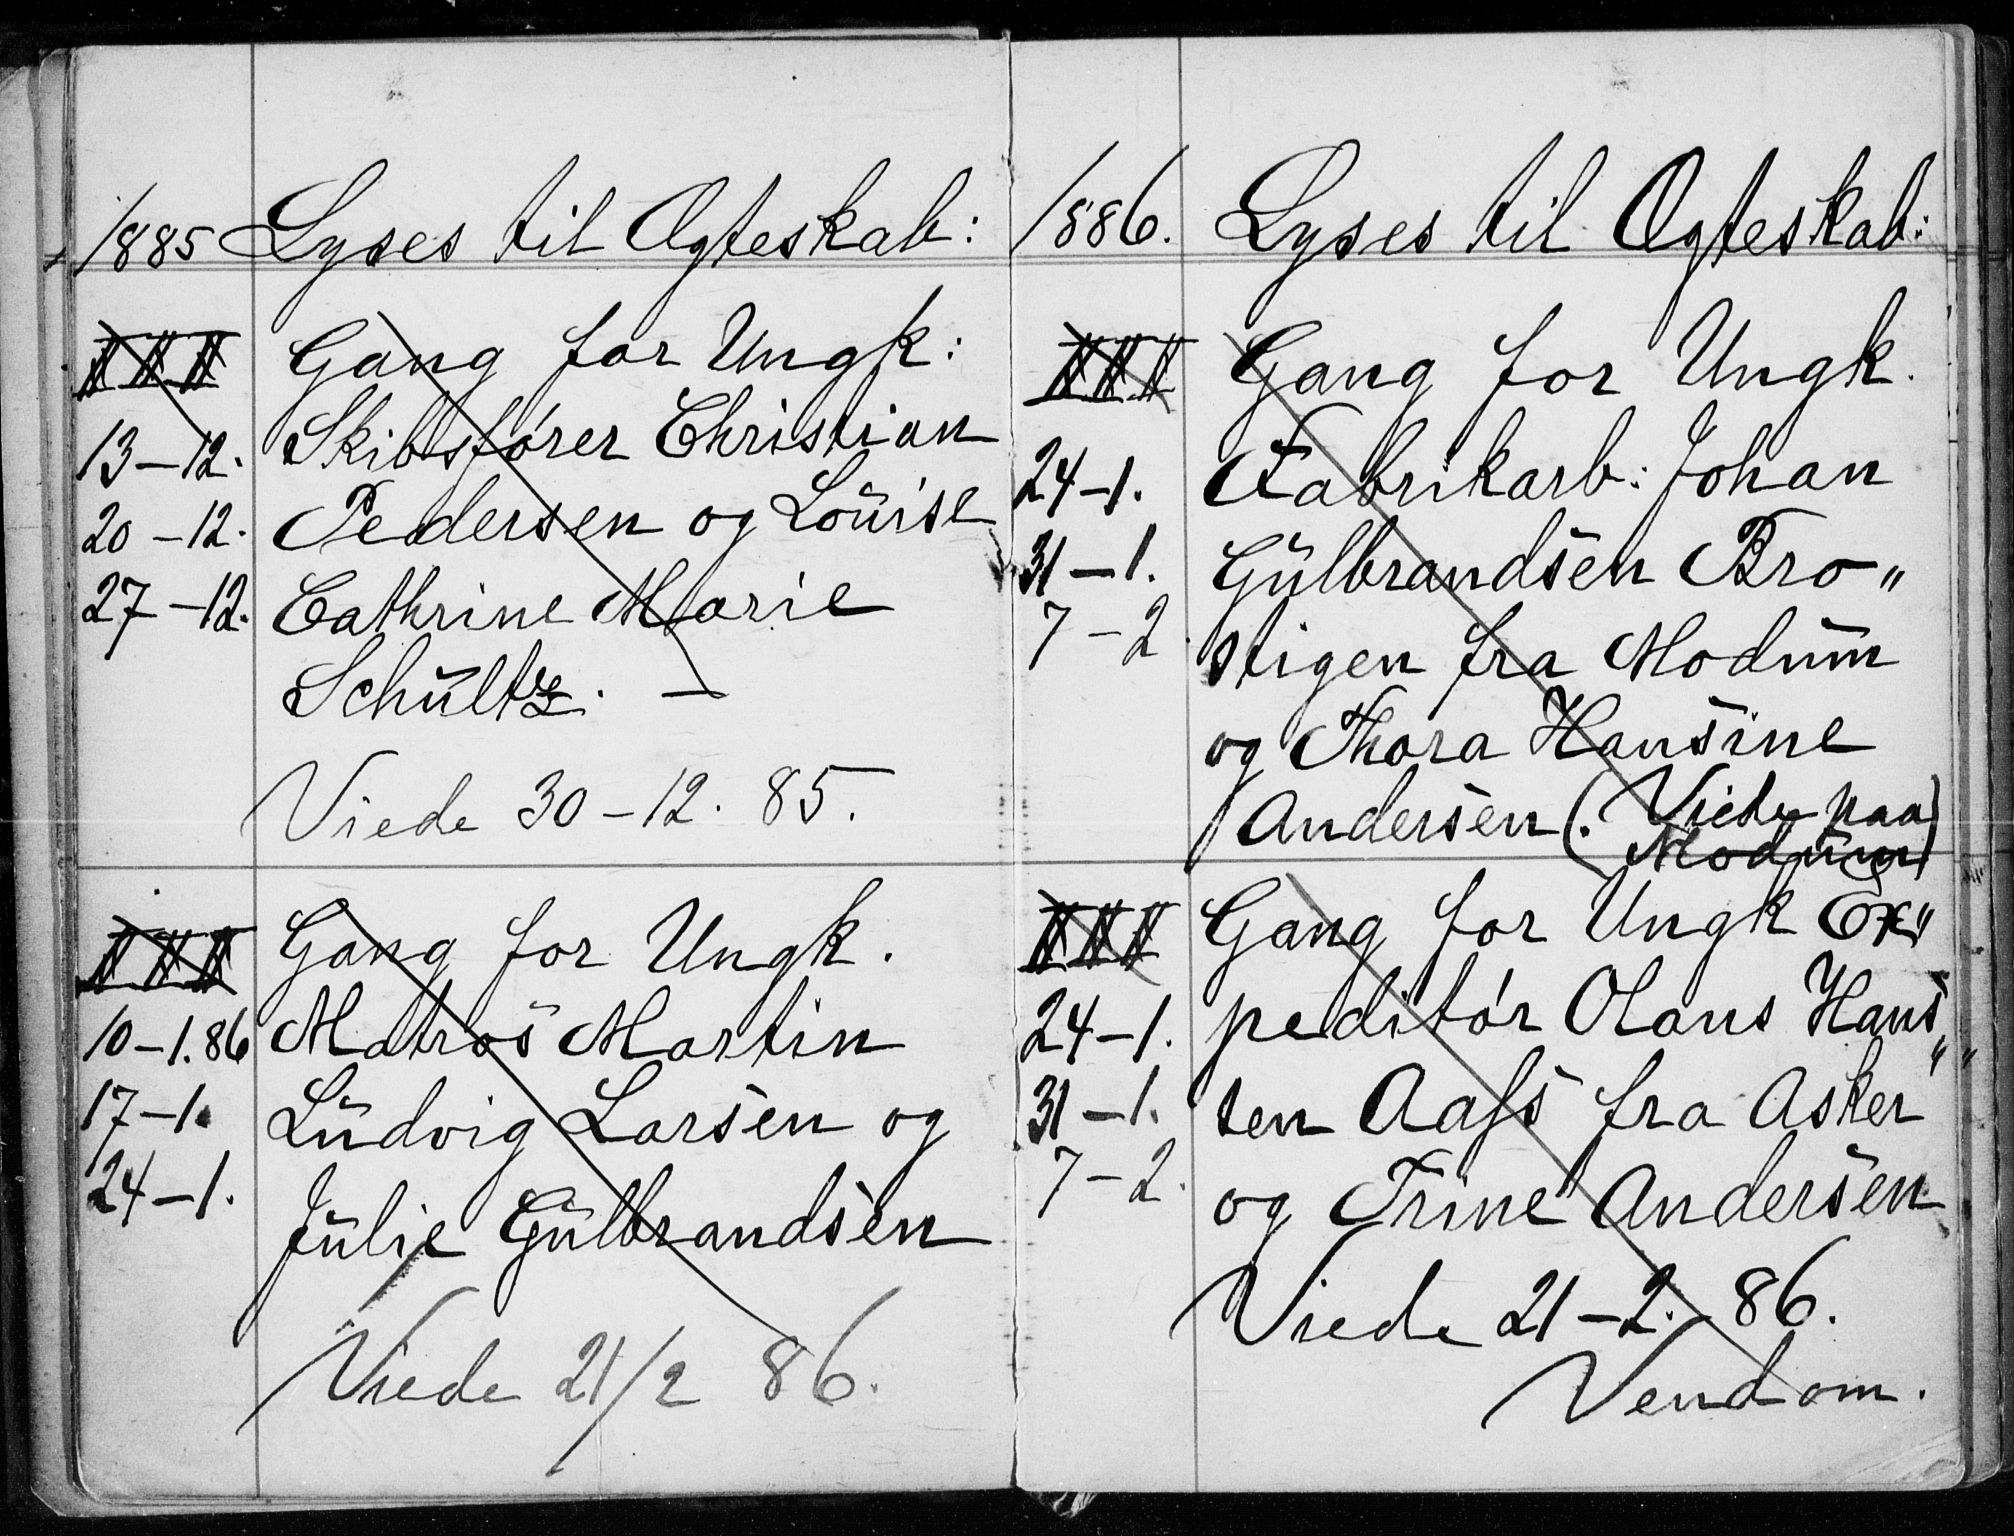 1885 Lyses til Ægteskab:
III Gang for Ungk:
13-12. Skibsfører Christian
20-12. Pedersen og Louise
27-12. Cathrine Marie
Schultz. —
Viede 30-12. 85.
III Gang for Ungk.
10-1.86 Matros Martin
17-1. Ludvig Larsen og
24-1. Julie Gulbrandsen
Viede 21/2 86.
1886. Lyses til Ægteskab:
III Gang for Ungk.
24-1. Fabrikarb: Johan
31-1. Gulbrandsen Bro„
7-2. stigen fra Modum
og Thora Hansine
Andersen (. Viede paa
Modum)
III Gang for Ungk Ex„
24-1. peditør Olaus Hans„
31-1. sen Aass fra Asker
7-2. og Trine Andersen
Viede 21-2. 86.
Vend om.